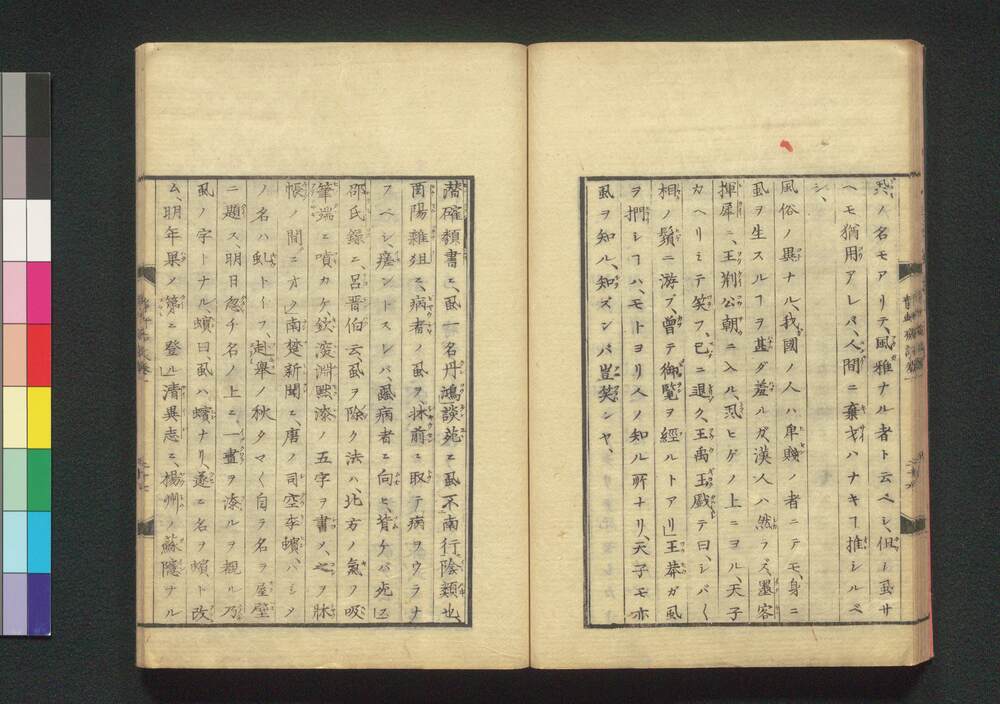 ノ名モアリテ、風雅ナル者ト云ベシ、但シ虱サ
ヘモ猶用アレバ、人間ニ棄才ハナキヿ推シルベ
シ、
風俗ノ異ナル、我國ノ人ハ卑賤ノ者ニテモ、身ニ
虱ヲ生スルヿヲ甚ダ羞ルガ、漢人ハ然ラズ、墨客
揮犀ニ、王荊公朝ニ入ル、虱ヒゲノ上ニヨル、天子
カヘリミテ笑フ、已ニ退ク、王禹玉戯テ曰、シバ〱
相ノ鬚ニ游ブ、曽テ御覧ヲ經ルトアリ」王莽ガ虱
ヲ捫シヿハ、モトヨリ人ノ知ル所ナリ、天子モ亦
虱ヲ知ル、知ズンバ豈笑ンヤ、
潜確類書ニ、虱一名丹鴻」談苑ニ虱不南行陰類也、
酉陽雜俎ニ、病者ノ虱ヲ、牀前ニ取テ病ヲウラナ
フベシ、瘥ントスレバ虱病者ニ向ヒ、背ケバ死ス」
邵氏録ニ、呂晋伯云、虱ヲ除ク法ハ、北方ノ氣ヲ吸
筆端ニ噴カケ、欽深淵黙漆ノ五字ヲ書メ、之ヲ牀
帳ノ間ニオク」南楚新聞ニ、唐ノ司空李蠙、ハジメ
ノ名ハ虬トイフ、赴舉ノ秋タマ〱自ラ名ヲ屋壁
ニ題ス、明日忽チ名ノ上ニ、一畫ヲ添ルヲ覩ル乃
虱ノ字トナル、蠙曰、虱ハ蠙ナリ、遂ニ名ヲ蠙ト改
ム、明年果メ第ニ登ル」清異志ニ、揚州ノ蘇隱ナル